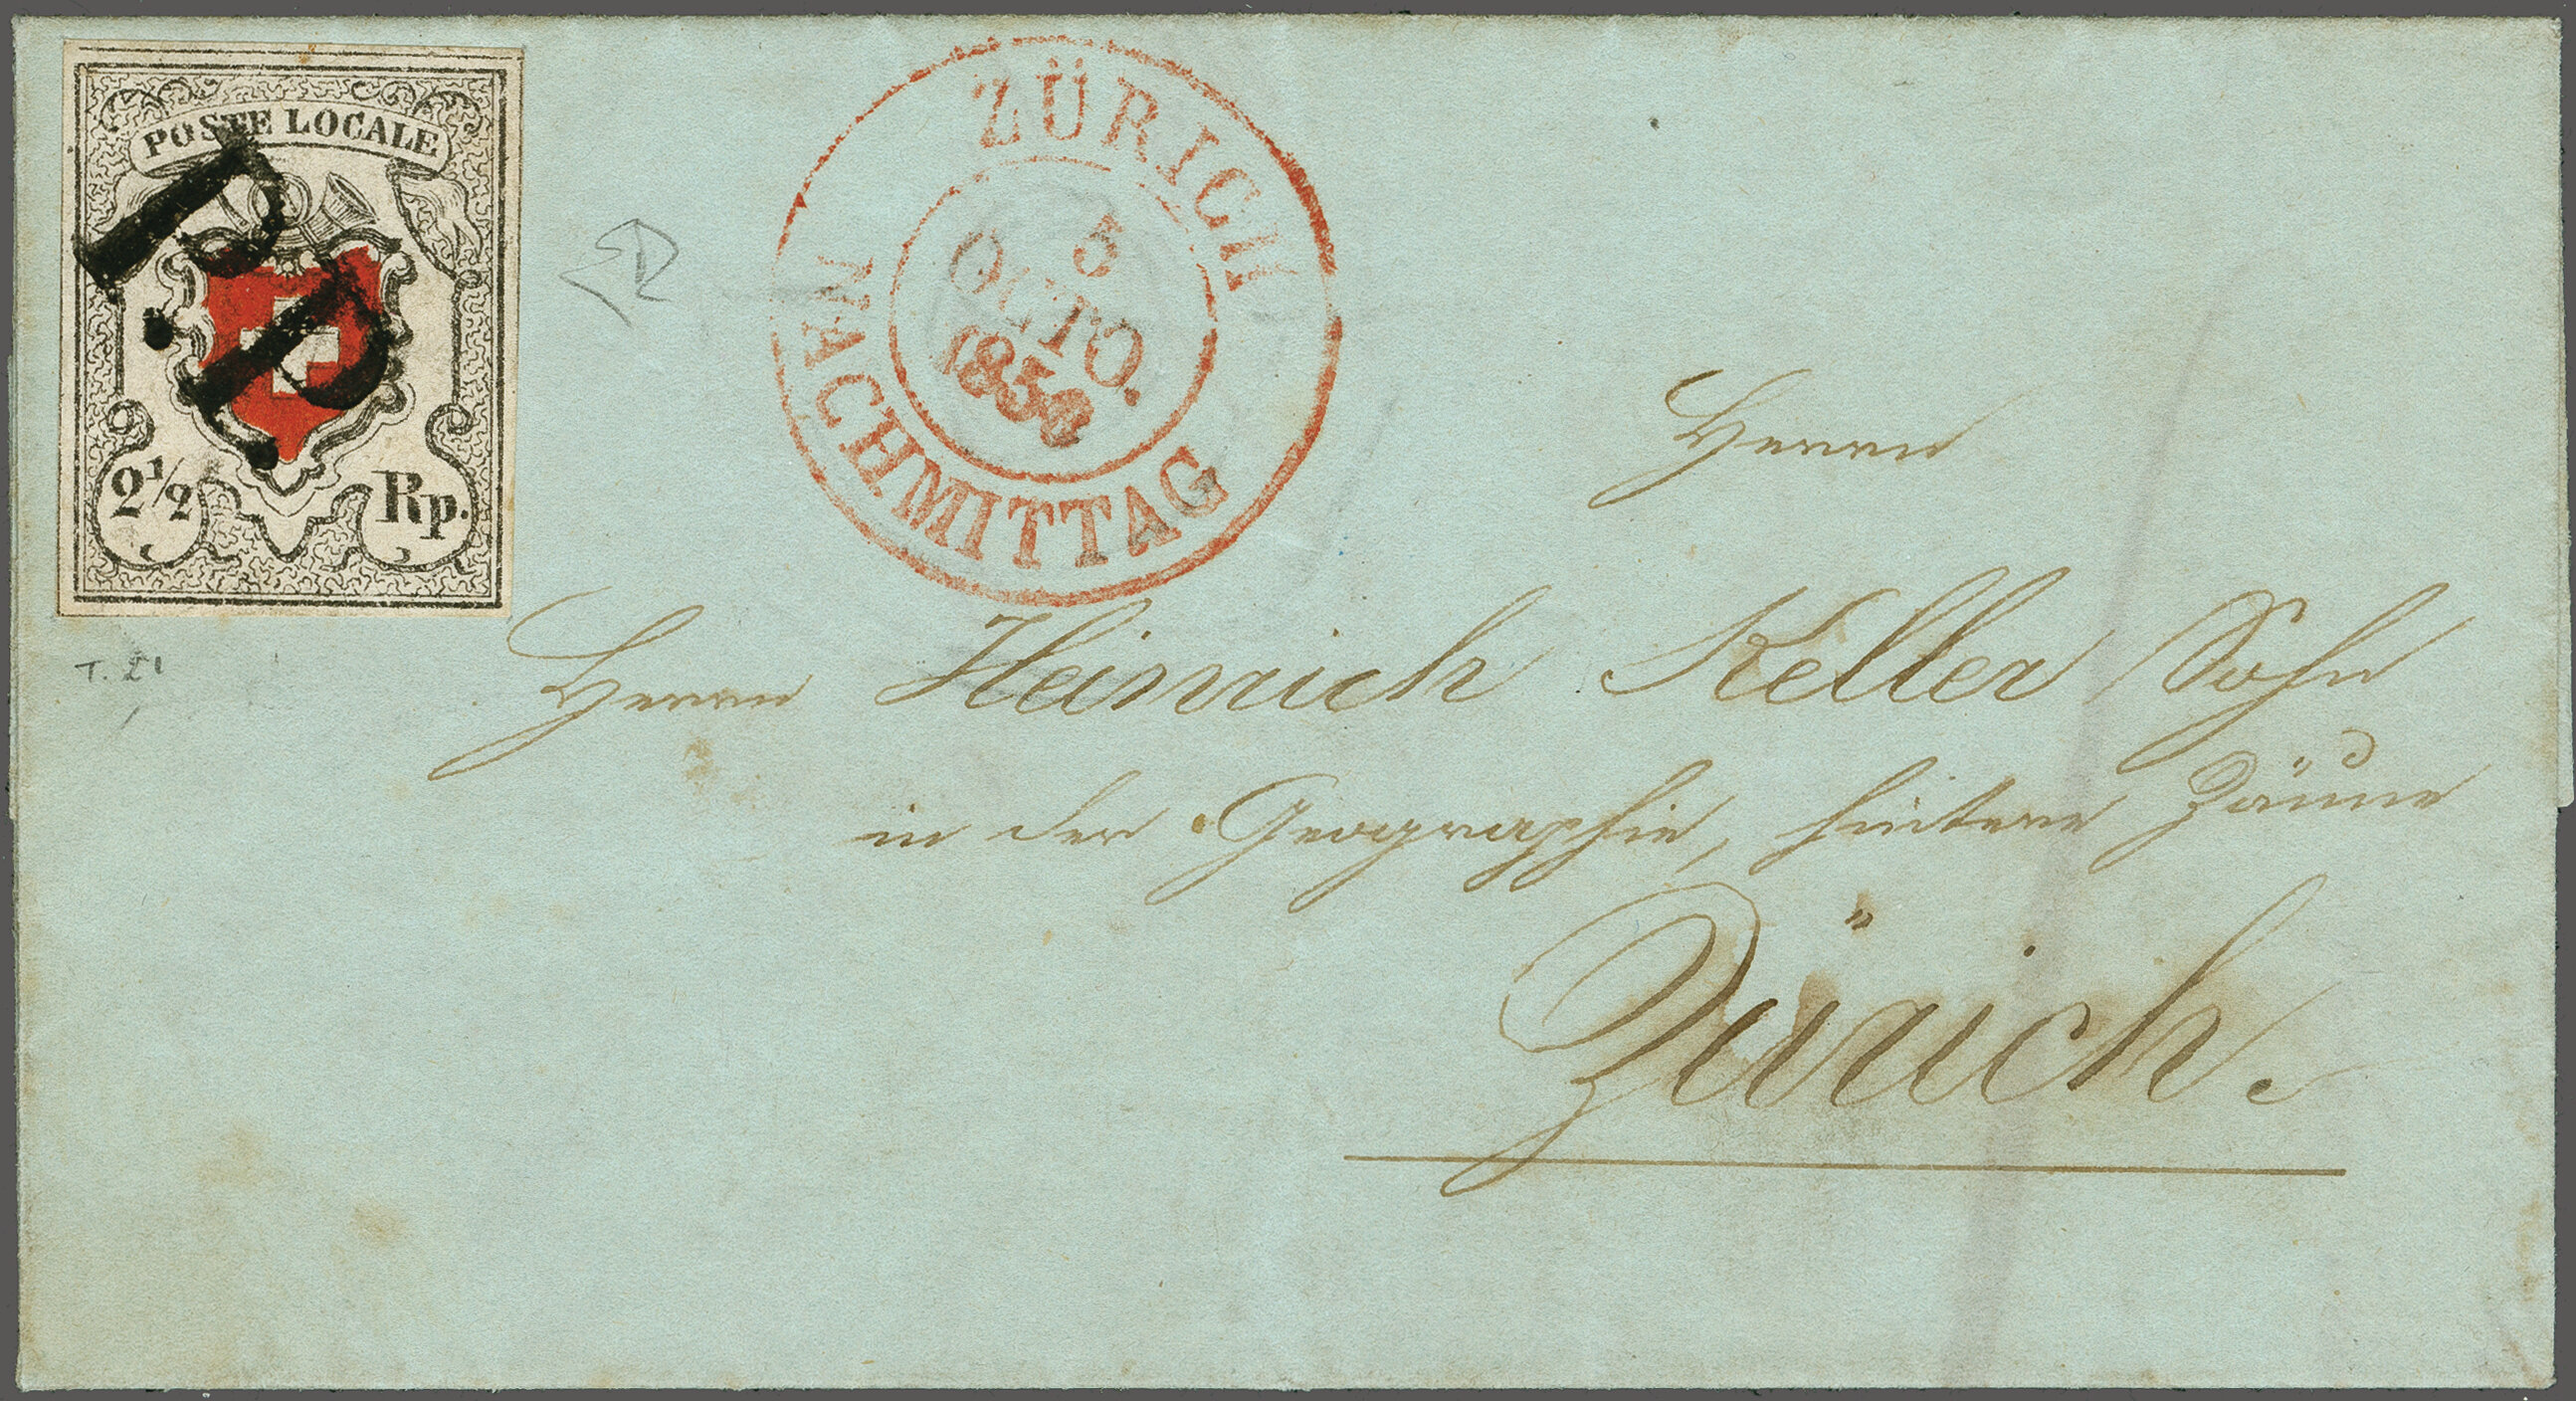 POSTE LOCALE
P.P.
2 1/2 Rp.
ZÜRICH
5
OCTO.
1850
NACHMITTAG
Herrn
Herrn Heinrich Keller Sohn
in der Geographie, hintere Zäune
Zürich.
T. 21